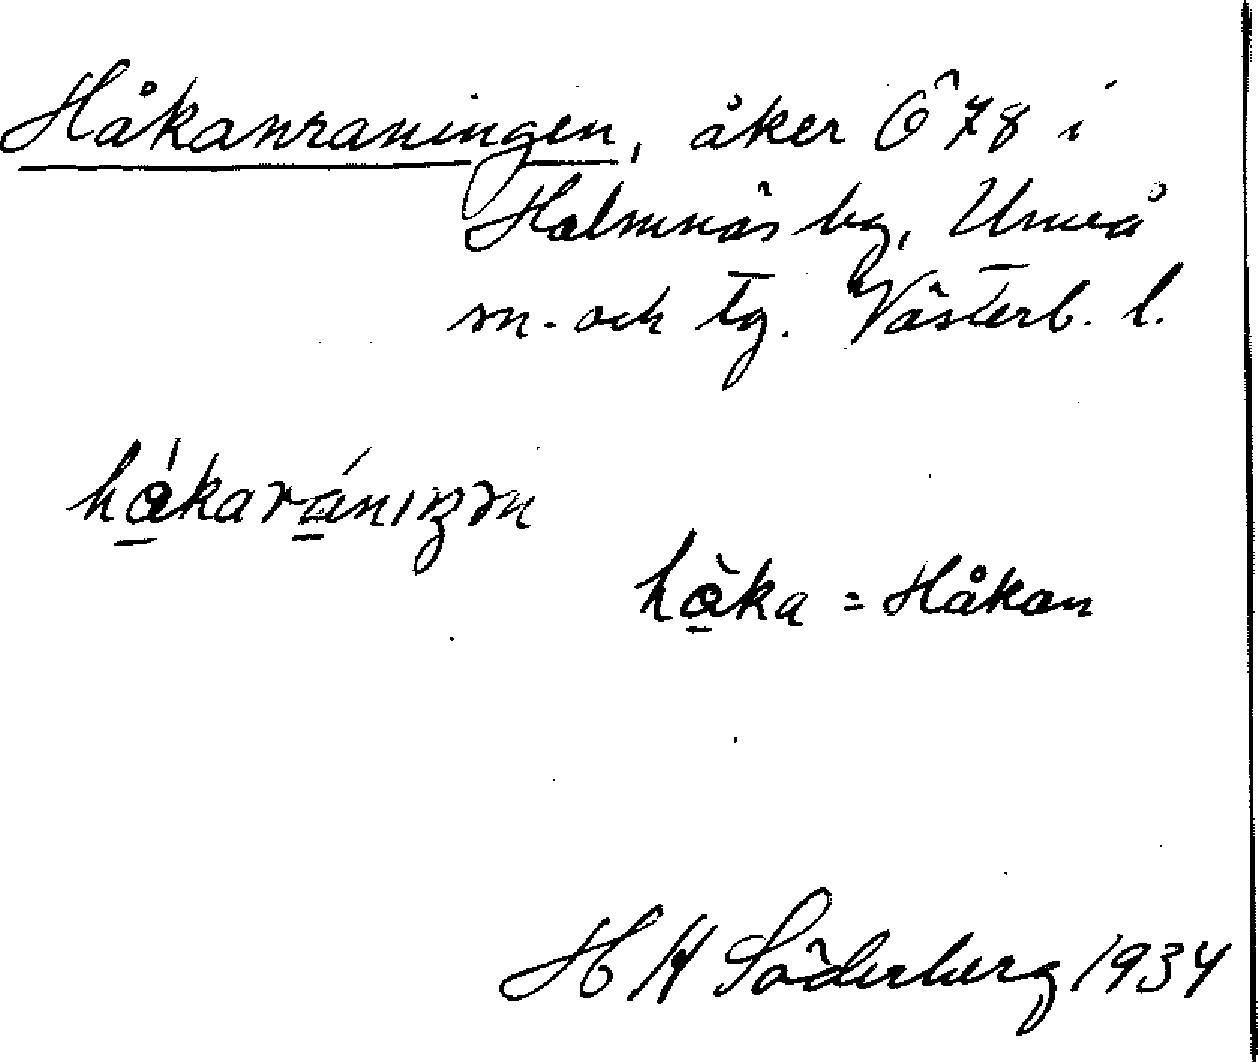 Håkanraningen, åker Ö 78 i
Holmnäs by, Umeå
sn. och tg. Västerb. l.
hǻ̲kará̲nıŋən
hå̲̀ka = Håkan
H H Söderberg 1934